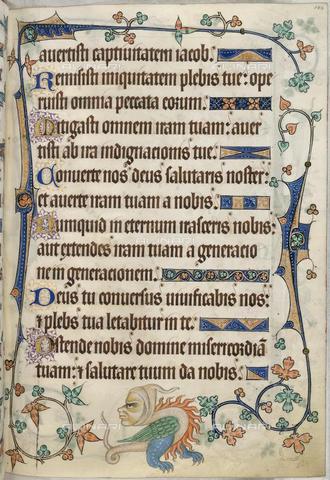 auertisti captiuitatem iacob.
Remisisti iniquitatem plebis tue: ope
ruisti omnia peccata eorum.
Mitigasti omnem iram tuam: auer
tisti ab ira indignacionis tue.
Conuerte nos deus salutaris noster:
et auerte iram tuam a nobis.
Numquid in eternum irasceris nobis:
aut extendes iram tuam a generacio
ne in generacionem.
Deus tu conuersus uiuificabis nos:
& plebs tua letabitur in te.
Ostende nobis domine misericordiā
tuam: & salutare tuum da nobis.
ALINARI